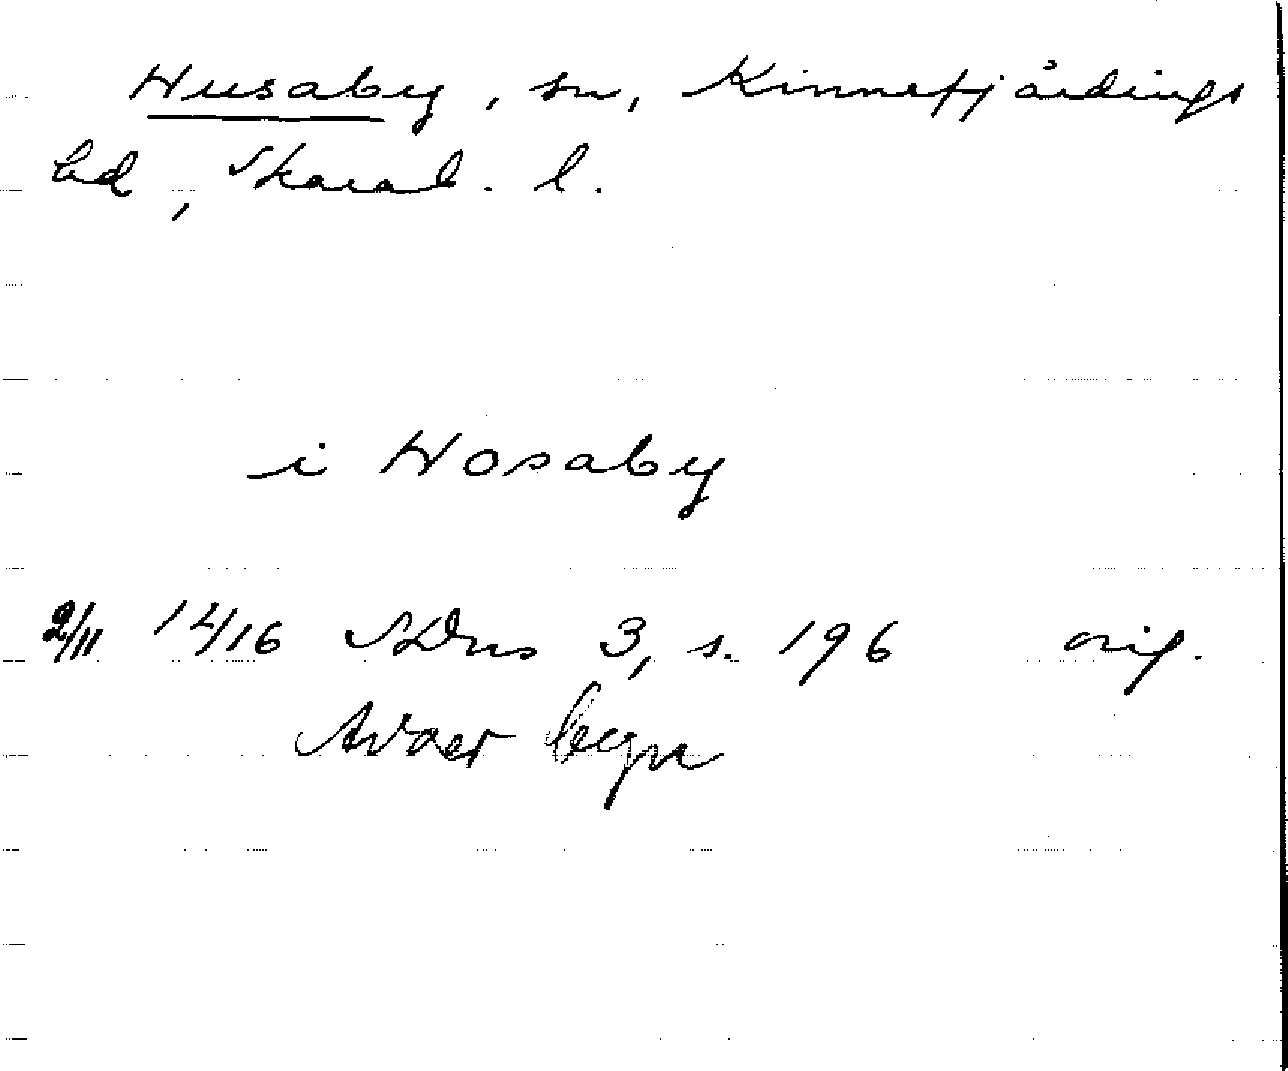 Husaby, sn, Kinnefjärdings
hd, Skarab. l.
i Hosaby
2/11 1416 SDns 3, s. 196 orig.